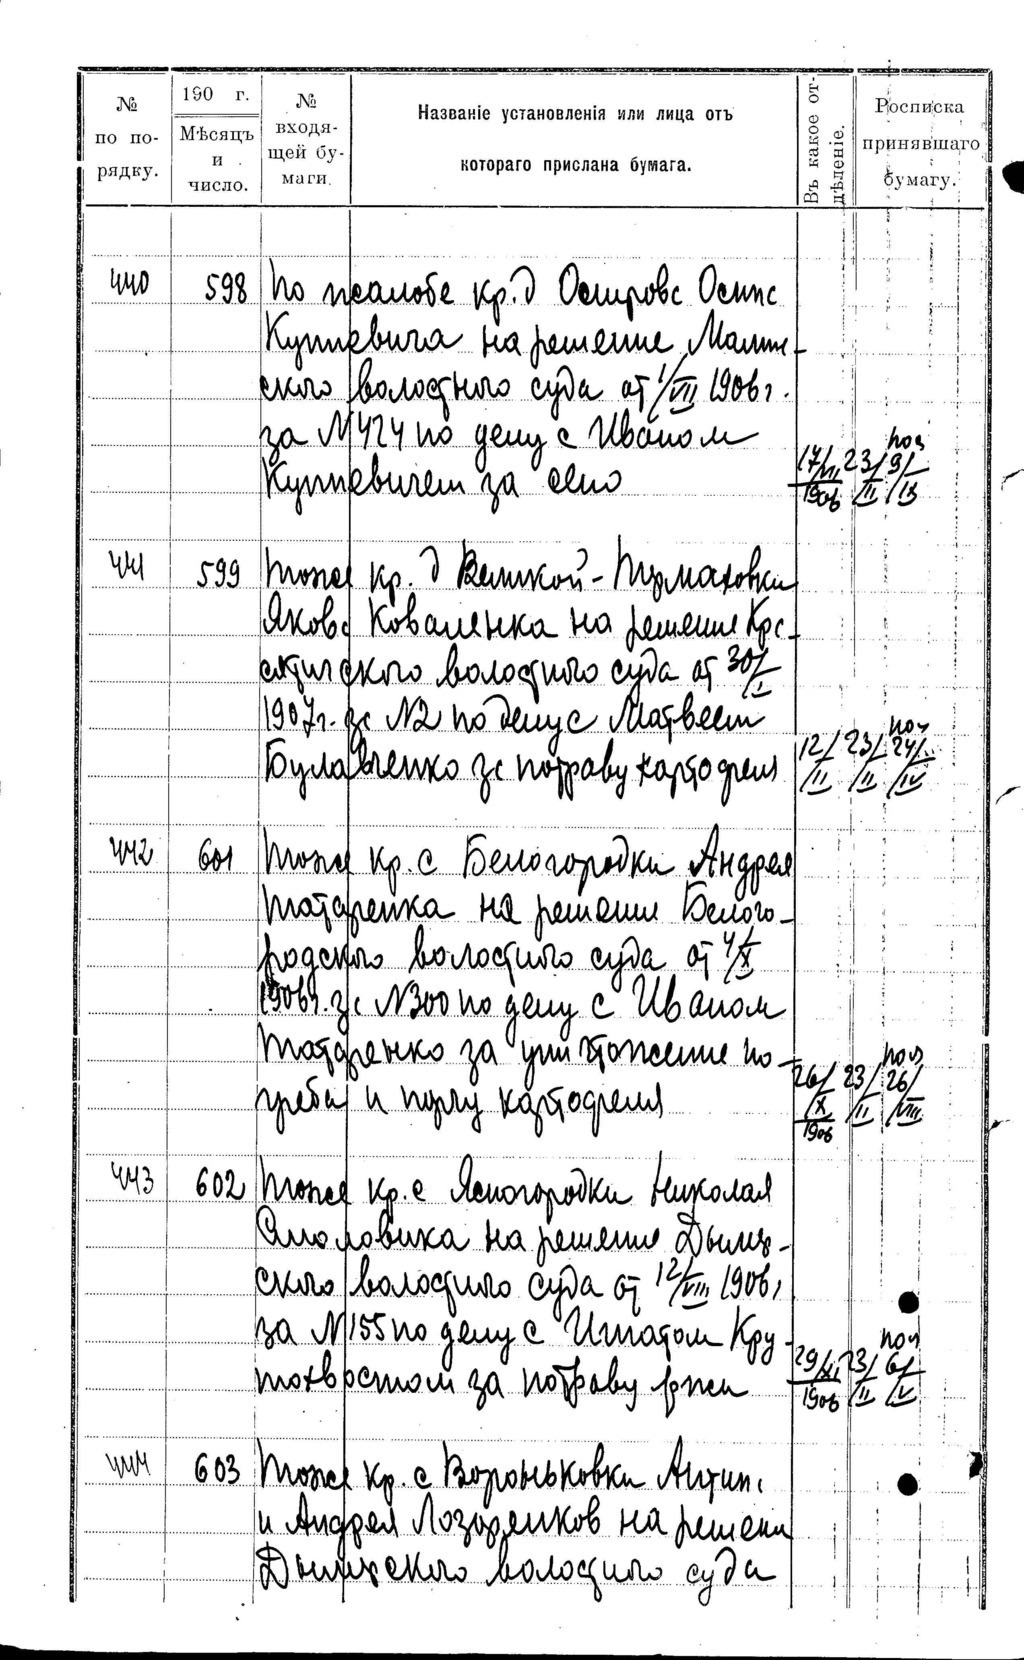 № по порядку.
190 г.
Мѣсяцъ и число.
№ входящей бумаги.
Названіе установленія или лица отъ
котораго прислана бумага.
Въ какое отдѣленіе.
Росписка принявшаго бумагу.
440 598 По жалобе кр. д Осипа
на решение
ского волостного суда от 1/VII 1906 г.
за N 424 по делу с Иваном
за сено 17/VII 1906 23/II 9/IX
441 599 Тоже кр. д Великой-
Якова Коваленка на решение
ского волостного суда от 30/I
1907 г. за N2 по делу с Матвеем
Булавченко за потраву картофеля 12/II 23/II 24/IV
442 601 Тоже кр. с Белогородки Андрея
Татаренка на решение Белого-
родского волостного суда от 4/X
1906 г. за N300 по делу с Иваном
Татаренко за уничтожение по-
греба и порчу картофеля 26/X 1906 23/II 26/VIII
443 602 Тоже кр. с Ясногородки Николая
на решение Дымер-
ского волостного суда от 12/VIII 1906 г
за N155 по делу с Игнатом Кру-
тохвостом за потраву ржи 29/XI 1906 23/II 6/V
444 603 Тоже кр. с Вороньковки Антипа
и Андрея Лазаренков на решени
Дымерского волостного суда